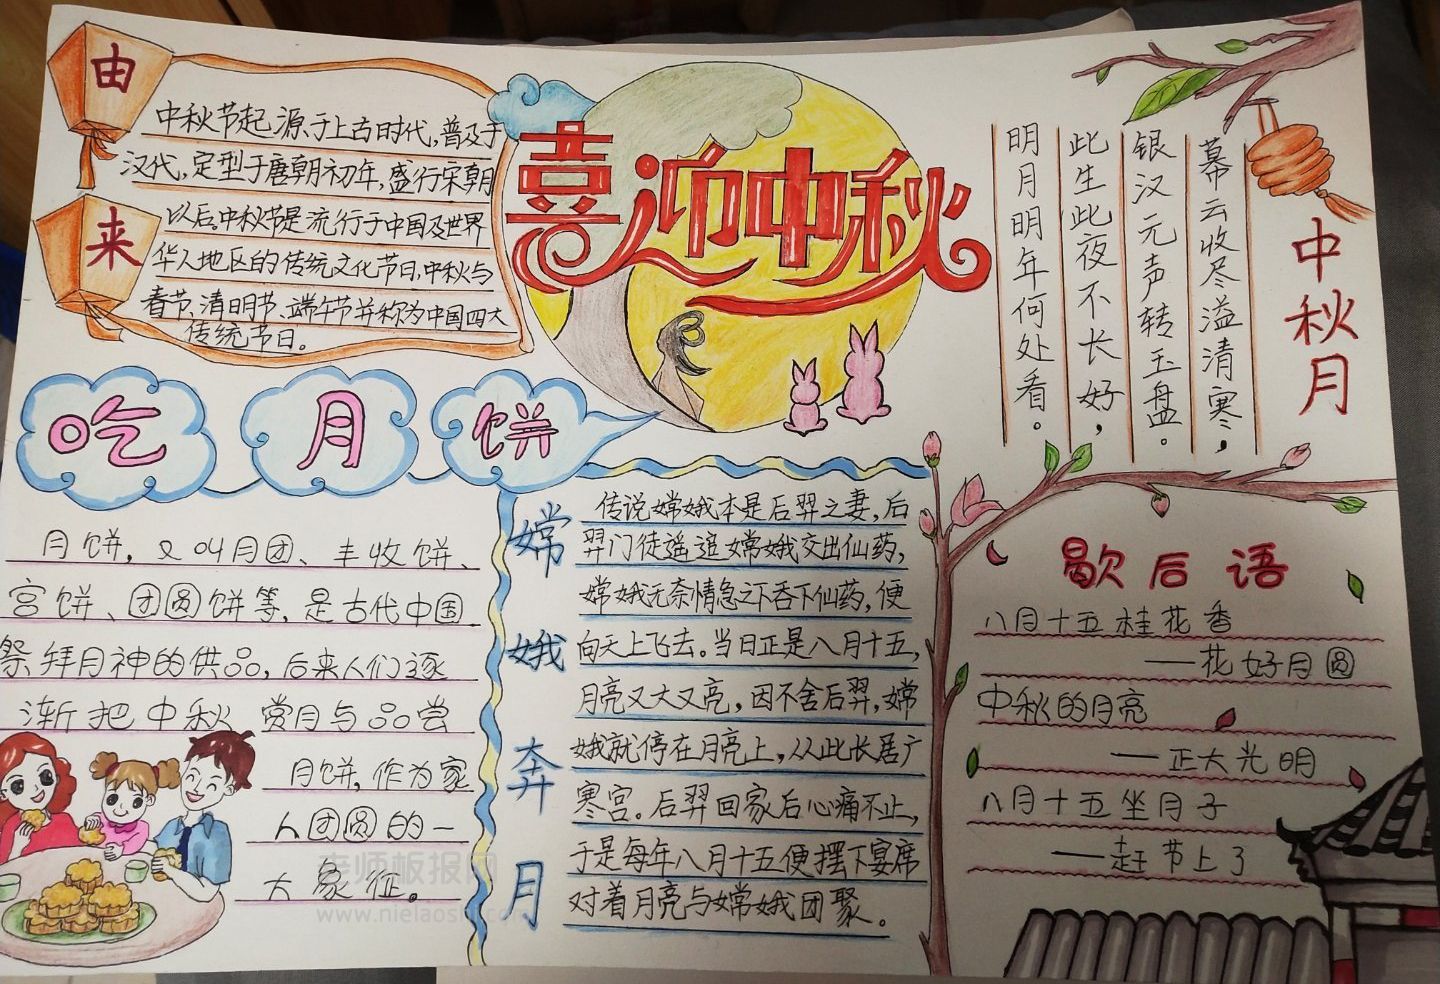 由来
中秋节起源于上古时代，普及于
汉代，定型于唐朝初年，盛行宋朝
以后。中秋节是流行于中国及世界
华人地区的传统文化节日，中秋与
春节、清明节、端午节并称为中国四大
传统节日。
喜迎中秋
中秋月
暮云收尽溢清寒，
银汉无声转玉盘。
此生此夜不长好，
明月明年何处看。
吃月饼
月饼，又叫月团、丰收饼、
宫饼、团圆饼等，是古代中国
祭拜月神的供品，后来人们逐
渐把中秋赏月与品尝
月饼，作为家
人团圆的一
大象征。
嫦娥奔月
传说嫦娥本是后羿之妻，后
羿门徒遥追嫦娥交出仙药，
嫦娥无奈情急之下吞下仙药，便
向天上飞去。当日正是八月十五，
月亮又大又亮，因不舍后羿，嫦
娥就停在月亮上，从此长居广
寒宫。后羿回家后心痛不止，
于是每年八月十五便摆下宴席
对着月亮与嫦娥团聚。
歇后语
八月十五桂花香
——花好月圆
中秋的月亮
——正大光明
八月十五坐月子
——赶节上了
老师板报网
www.nielaoshi.com